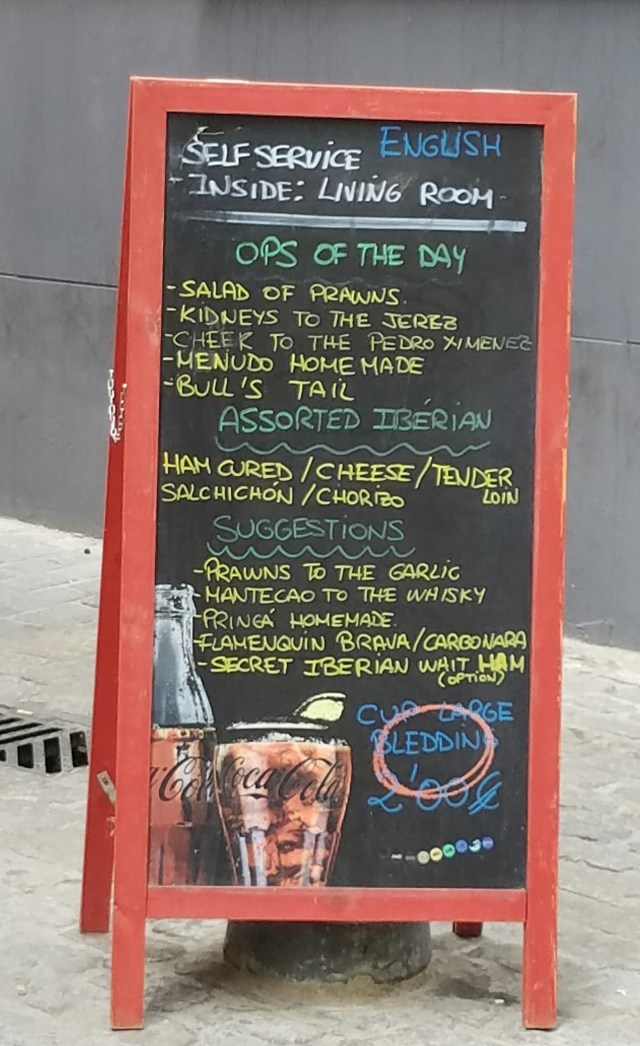 SELF SERVICE ENGLISH
- INSIDE: LIVING ROOM -
OPS OF THE DAY
- SALAD OF PRAWNS.
- KIDNEYS TO THE JEREZ
- CHEEK TO THE PEDRO XIMENEZ
- MENUDO HOMEMADE
- BULL'S TAIL
ASSORTED IBERIAN
HAM CURED / CHEESE / TENDER LOIN
SALCHICHÓN / CHORIZO
SUGGESTIONS
- PRAWNS TO THE GARLIC
- MANTECAO TO THE WHISKY
- PRINGÁ HOMEMADE.
- FLAMENQUIN BRAVA/CARBONARA
- SECRET IBERIAN WHIT HAM
(OPTION)
CUP LARGE
BLEDDING
2'00€
Coca-Cola